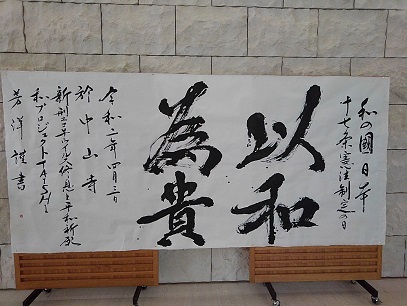 和の國日本
十七条憲法制定の日
以和
為貴
令和二年四月三日
於中山寺
新型コロナウイルス終息と平和祈願
和プロジェクトTAISHI
芳洋謹書